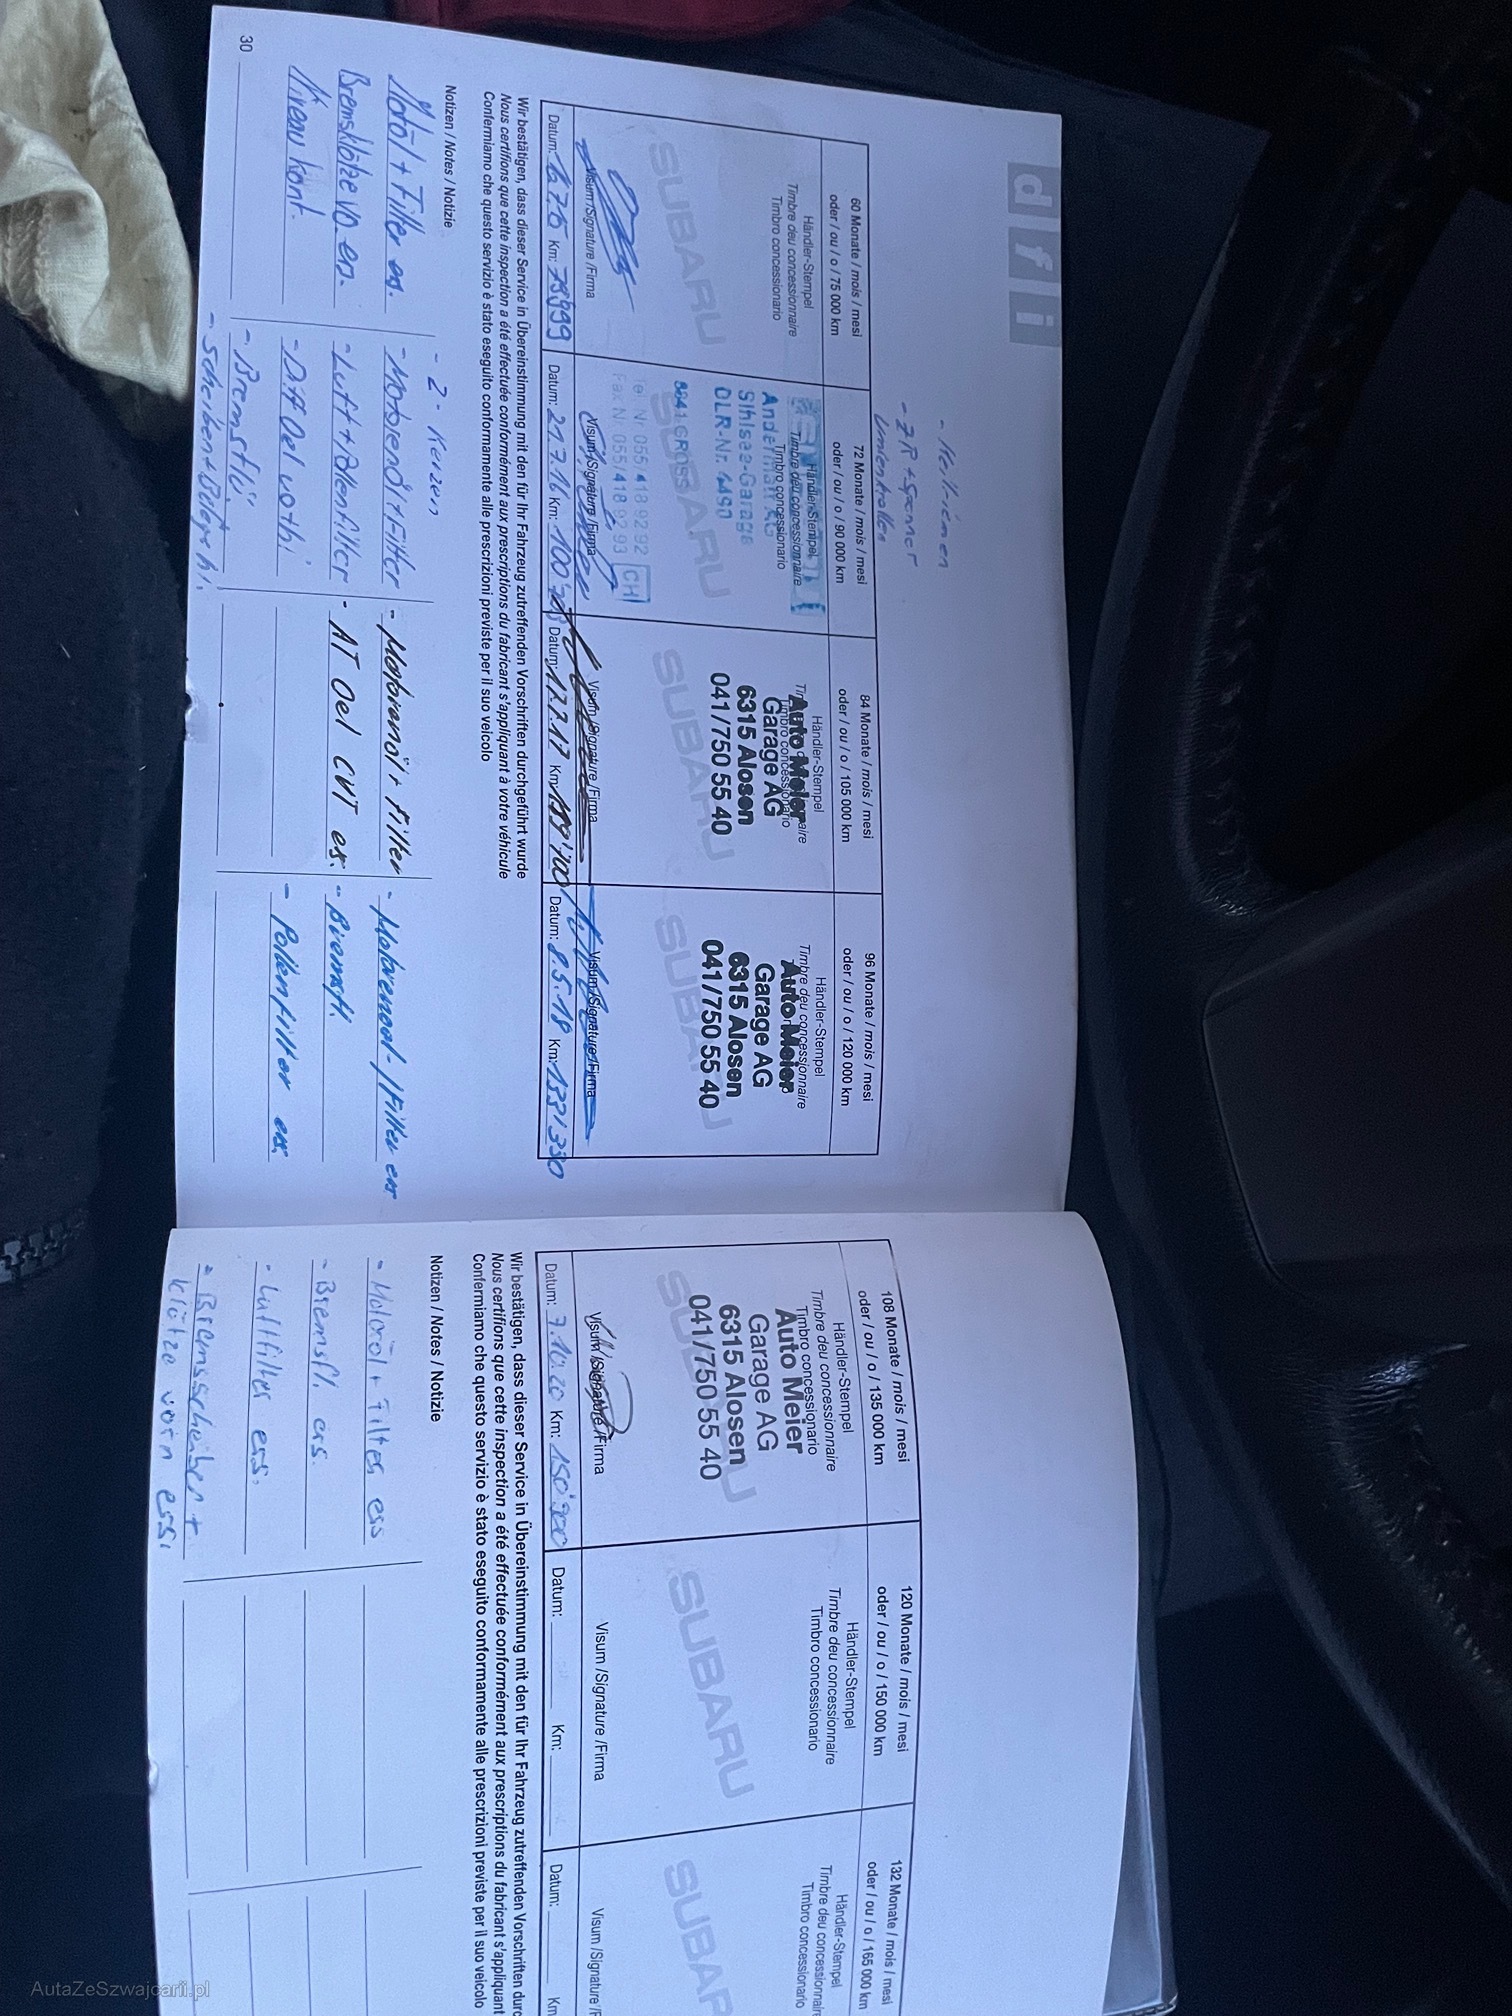 d f i
- Keilriemen
- ZR + Spanner
Umlenkrollen
60 Monate / mois / mesi
oder / ou / o / 75 000 km
Händler-Stempel
Timbre deu concessionnaire
Timbro concessionario
SUBARU
Visum /Signature /Firma
Datum: Km: 79999
72 Monate / mois / mesi
oder / ou / o / 90 000 km
Händler-Stempel
Timbre deu concessionnaire
Timbro concessionario
Sihlsee-Garage
OLR-Nr.
SUBARU
Tel. Nr 055/418 92 92
Fax Nr 055/418 92 93 CH
Visum /Signature /Firma
Datum: 27.7.16 Km:
84 Monate / mois / mesi
oder / ou / o / 105 000 km
Händler-Stempel
Timbro concessionario
Auto Meier
Garage AG
6315 Alosen
041/750 55 40
SUBARU
Visum /Signature /Firma
Datum: 17.7.17 Km:
96 Monate / mois / mesi
oder / ou / o / 120 000 km
Händler-Stempel
Timbre deu concessionnaire
Auto Meier
Garage AG
6315 Alosen
041/750 55 40
SUBARU
Visum /Signature /Firma
Datum: 8.5.18 Km: 133'330
Wir bestätigen, dass dieser Service in Übereinstimmung mit den für Ihr Fahrzeug zutreffenden Vorschriften durchgeführt wurde
Nous certifions que cette inspection a été effectuée conformément aux prescriptions du fabricant s'appliquant à votre véhicule
Confermiamo che questo servizio è stato eseguito conformamente alle prescrizioni previste per il suo veicolo
Notizen / Notes / Notizie
Motöl + Filter ers.
Bremsklötze vo. ers.
Niveau kont.
- Z - Kerzen
- Motorenöl + Filter
- Luft + Pollenfilter
- Diff Oel
- Bremsflü
- Motorenöl + Filter
- AT Oel CVT er.
- Motorenoel-/Filter ers
- Bremsfl.
- Pollenfilter ers.
30
108 Monate / mois / mesi
oder / ou / o / 135 000 km
Händler-Stempel
Timbre deu concessionnaire
Timbro concessionario
Auto Meier
Garage AG
6315 Alosen
041/750 55 40
Visum /Signature /Firma
Datum: 7.10.20 Km: 150'900
120 Monate / mois / mesi
oder / ou / o / 150 000 km
Händler-Stempel
Timbre deu concessionnaire
Timbro concessionario
SUBARU
Visum /Signature /Firma
Datum: Km:
132 Monate / mois / mesi
oder / ou / o / 165 000 km
Händler-Stempel
Timbre deu concessionnaire
Timbro concessionario
SUBAR
Visum /Signature /F
Datum: Km
Wir bestätigen, dass dieser Service in Übereinstimmung mit den für Ihr Fahrzeug zutreffenden Vorschriften durc
Nous certifions que cette inspection a été effectuée conformément aux prescriptions du fabricant s'appliquant
Confermiamo che questo servizio è stato eseguito conformamente alle prescrizioni previste per il suo veicolo
Notizen / Notes / Notizie
- Motoröl + Filter ers
- Bremsfl. ers.
- Luftfilter ers.
- Bremsscheiben +
klötze vorn ers.
AutaZeSzwajcarii.pl